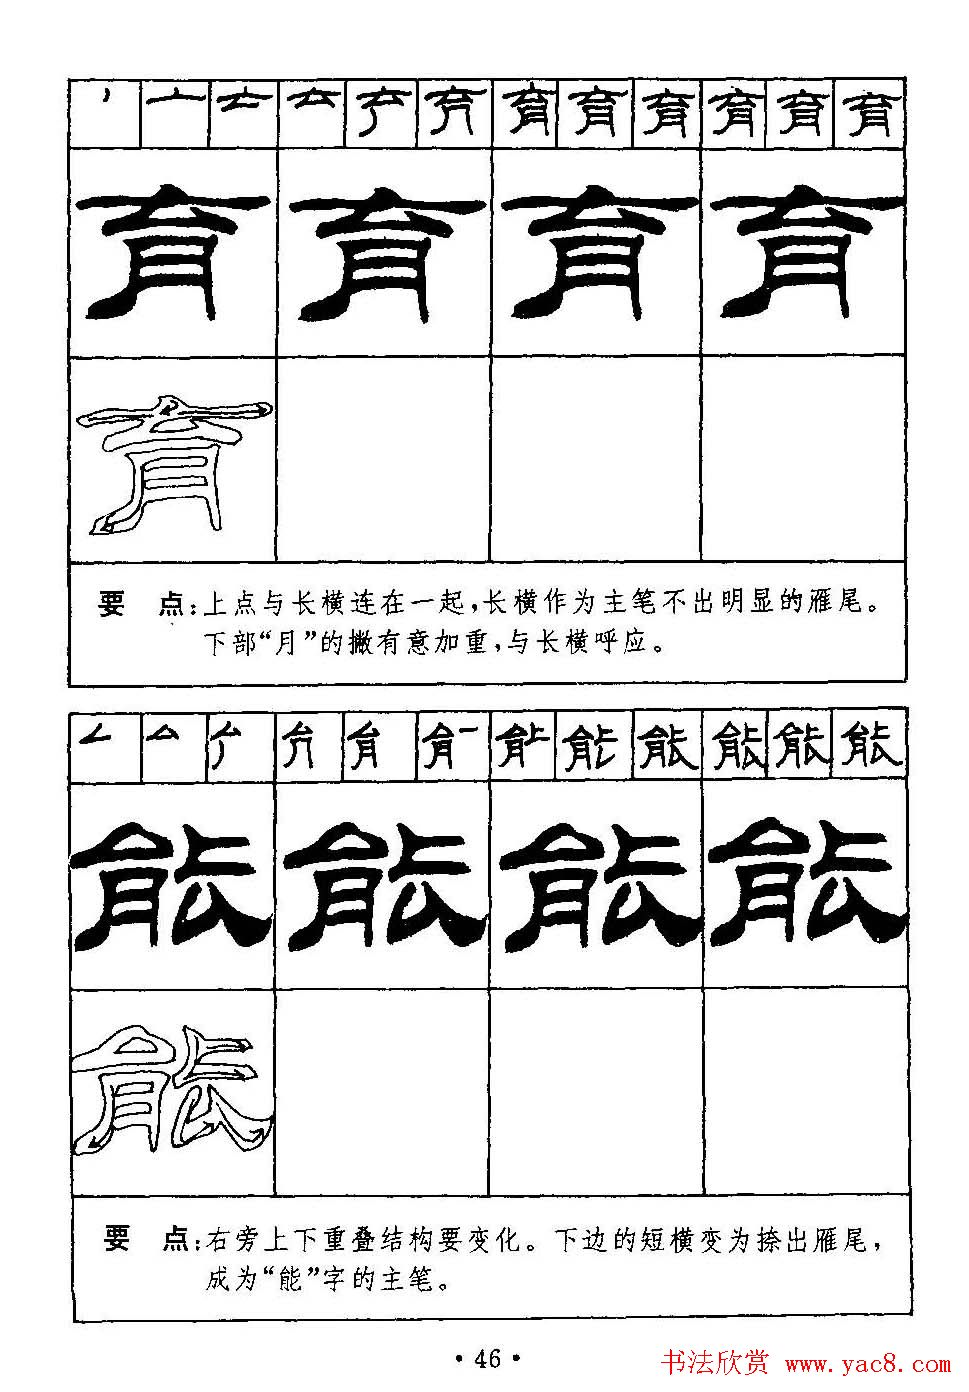 育 育 育 育 育 育
育 育 育 育
育
要 点:上点与长横连在一起,长横作为主笔不出明显的雁尾。
下部“月”的撇有意加重,与长横呼应。
能 能 能 能 能
能 能 能 能
能
要 点:右旁上下重叠结构要变化。下边的短横变为捺出雁尾,
成为“能”字的主笔。
·46·
书法欣赏 www.yac8.com